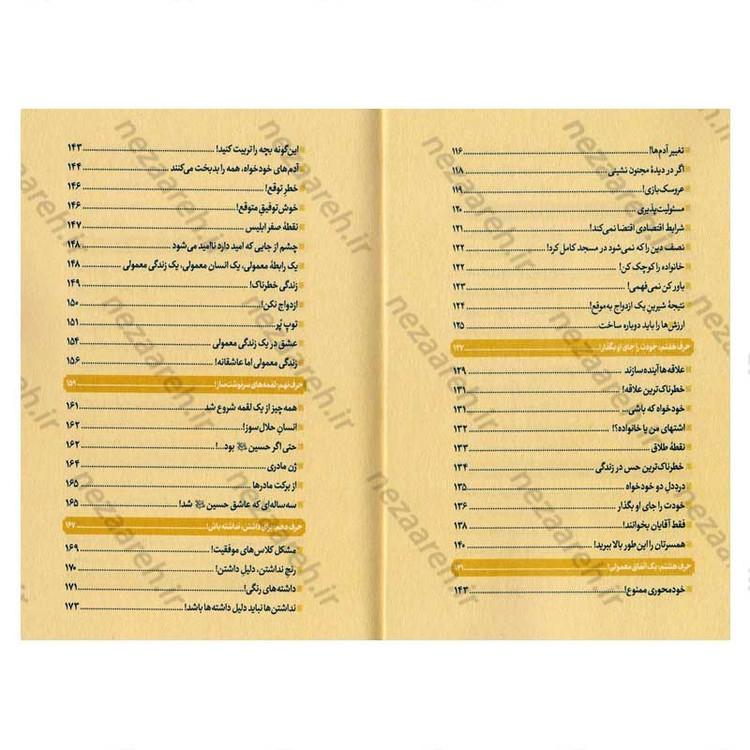 تغییر آدم‌ها! ۱۱۶
اگر در دیدهٔ مجنون نشینی ۱۱۸
عروسک‌بازی! ۱۱۹
مسئولیت‌پذیری ۱۲۰
شرایط اقتصادی اقتضا نمی‌کند! ۱۲۱
نصف دین را که نمی‌شود در مسجد کامل کرد! ۱۲۲
خانواده را کوچک کن! ۱۲۲
باور کن نمی‌فهمی! ۱۲۳
نتیجهٔ شیرینِ یک ازدواج به‌موقع! ۱۲۴
ارزش‌ها را باید دوباره ساخت ۱۲۵
حرف هفتم: خودت را جای او بگذار! ۱۲۷
علاقه‌ها آینده سازند ۱۲۹
خطرناک‌ترین علاقه! ۱۳۱
خودخواه که باشی... ۱۳۱
اشتهای من یا خانواده؟! ۱۳۲
نقطهٔ طلاق ۱۳۳
خطرناک‌ترین حس در زندگی ۱۳۴
دردِدلِ دو خودخواه ۱۳۵
خودت را جای او بگذار ۱۳۶
فقط آقایان بخوانند! ۱۳۸
همسرتان را این‌طور بالا ببرید! ۱۴۰
حرف هشتم: یک اتفاق معمولی! ۱۴۱
خودمحوری ممنوع! ۱۴۳
این‌گونه بچه را تربیت کنید! ۱۴۳
آدم‌های خودخواه، همه را بدبخت می‌کنند ۱۴۴
خطر توقع! ۱۴۶
خوش‌توفیقِ متوقع! ۱۴۶
نقطهٔ صفر ابلیس ۱۴۷
چشم از جایی که امید دارد ناامید می‌شود ۱۴۸
یک رابطهٔ معمولی، یک انسان معمولی، یک زندگی معمولی ۱۴۸
زندگی خطرناک! ۱۴۹
ازدواج نکن! ۱۵۰
توپ پُر ۱۵۱
عشق در یک زندگی معمولی ۱۵۴
زندگی معمولی اما عاشقانه! ۱۵۶
حرف نهم: لقمه‌های سرنوشت‌ساز! ۱۵۹
همه‌چیز از یک لقمه شروع شد ۱۶۱
انسانِ حلال سوز! ۱۶۲
حتی اگر حسین بود...! ۱۶۲
ژن مادری ۱۶۴
از برکت مادرها ۱۶۵
سه‌ساله‌ای که عاشق حسین شد! ۱۶۵
حرف دهم: برای داشتن، نداشته باش! ۱۶۷
مشکل کلاس‌های موفقیت! ۱۶۹
رنج نداشتن، دلیلِ داشتن! ۱۷۰
داشته‌های رنگی! ۱۷۱
نداشتن‌ها نباید دلیل داشته‌ها باشد! ۱۷۳
nezaareh.ir